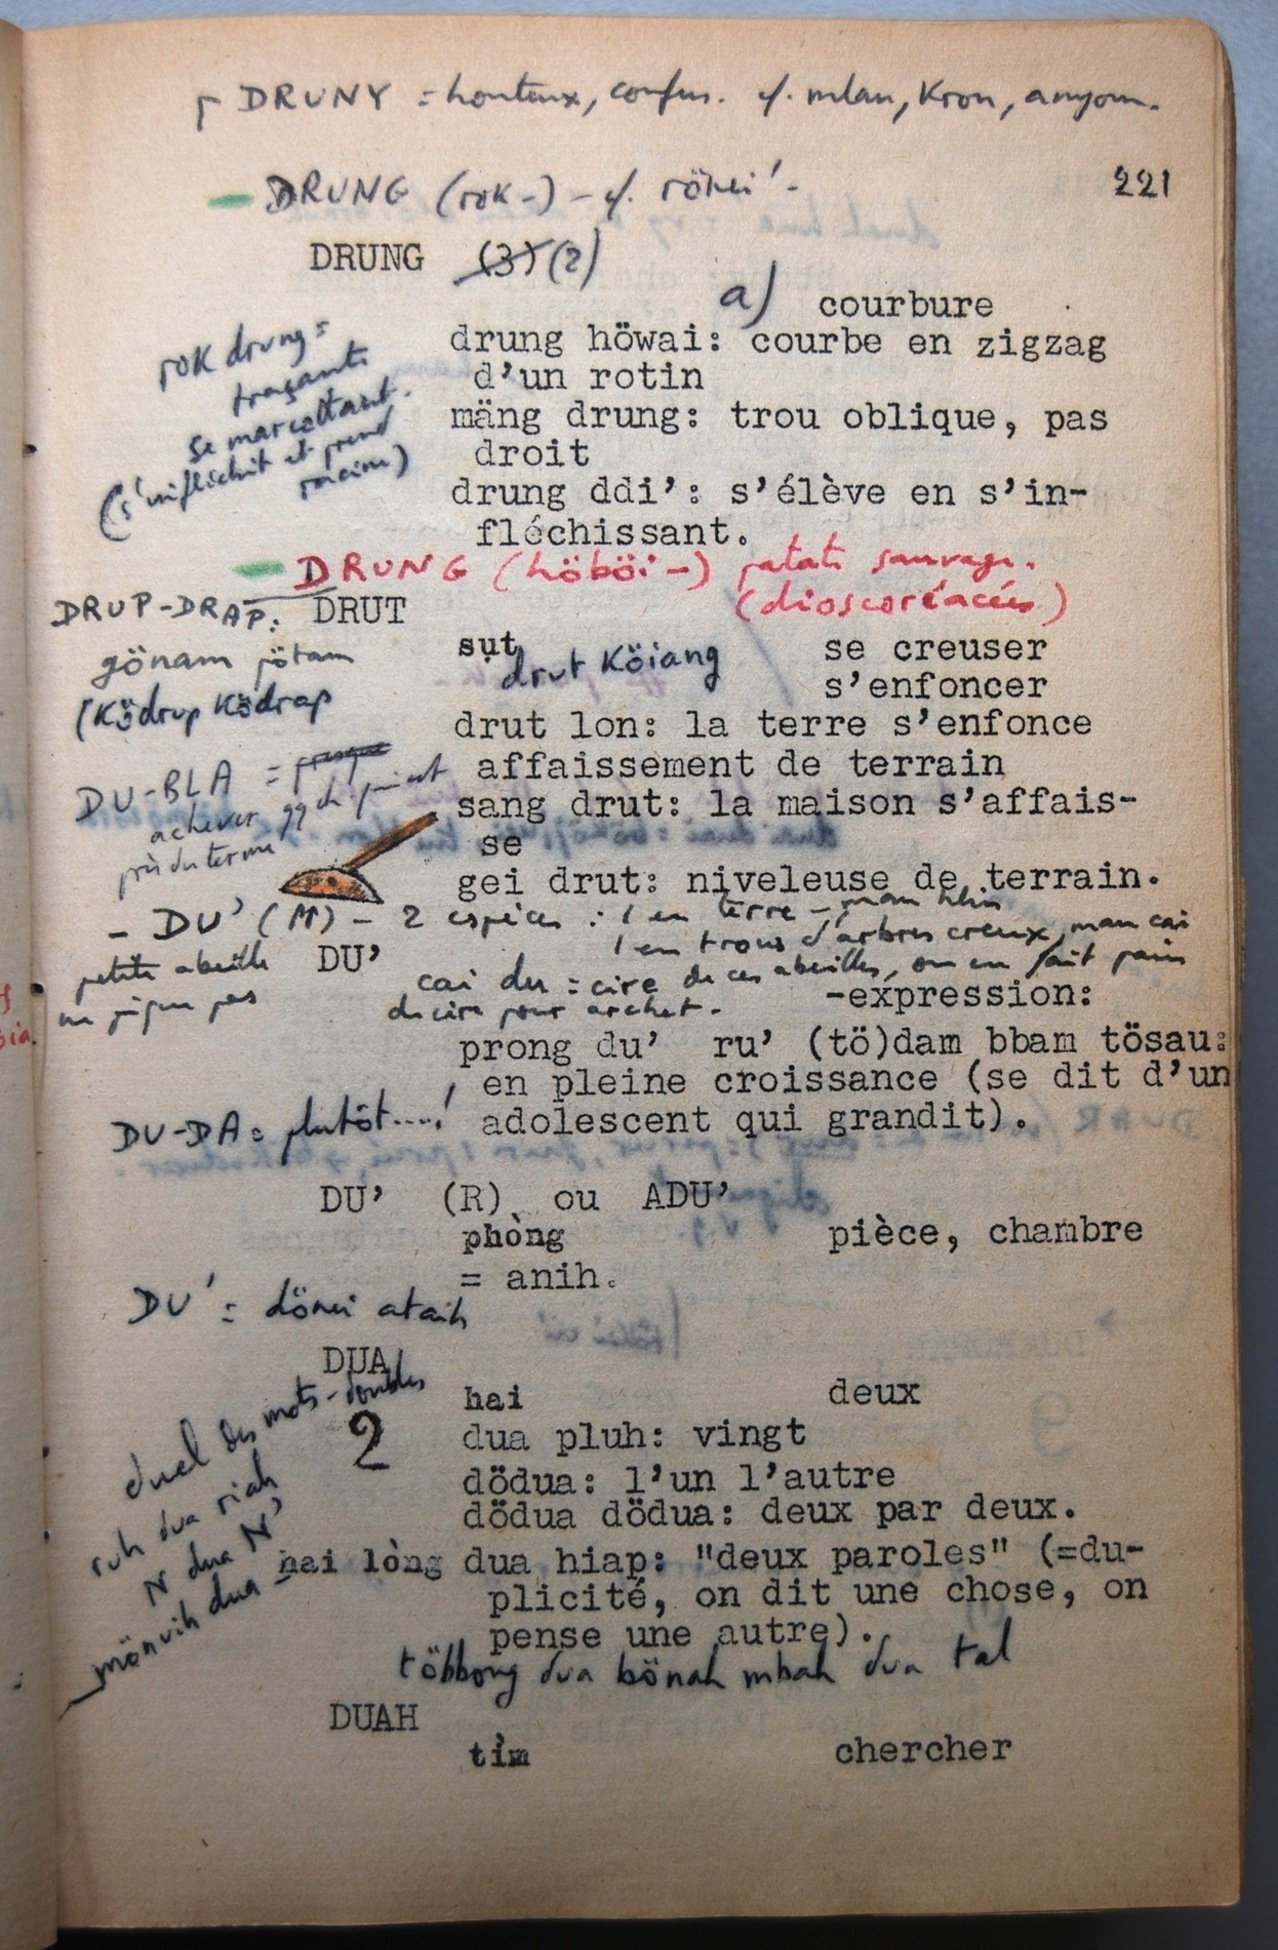 DRUNY = honteux, confus. cf. mlau, Kron, anyom.
DRUNG (rok-) - cf. röhei' -
221
DRUNG (3) (2)
a) courbure
drung höwai: courbe en zigzag
d'un rotin
mäng drung: trou oblique, pas
droit
drung ddi': s'élève en s'in-
fléchissant.
rok drung =
traçant
se marcottant.
(s'infléchit et prend
racine)
DRUNG (höböi-) patate sauvage.
(dioscoréacées)
DRUP-DRAP:
gönam jötam
(Ködrup Ködrap
DRUT
sụt drut Köiang se creuser
s'enfoncer
drut lon: la terre s'enfonce
affaissement de terrain
sang drut: la maison s'affais-
se
gei drut: niveleuse de terrain.
DU-BLA = presque
achever qq ch
près du terme
- DU' (M) - 2 espèces : 1 en terre -
1 en trous d'arbres creux,
petite abeille
ne pique pas
cai du = cire de ces abeilles, on en fait pains
de cire pour archet.
DU'
-expression:
prong du' ru' (tö)dam bbam tösau:
en pleine croissance (se dit d'un
adolescent qui grandit).
DU-DA = plutôt....!
DU' (R) ou ADU'
phòng pièce, chambre
= anih.
DU' = dönei ataih
DUA
2
hai deux
dua pluh: vingt
dödua: l'un l'autre
dödua dödua: deux par deux.
hai lòng dua hiap: "deux paroles" (=du-
plicité, on dit une chose, on
pense une autre).
duel des mots-doubles
ruh dua riah
N dua N'
mönuih dua -
többong dua bönah mbah dua tal
DUAH
tìm chercher